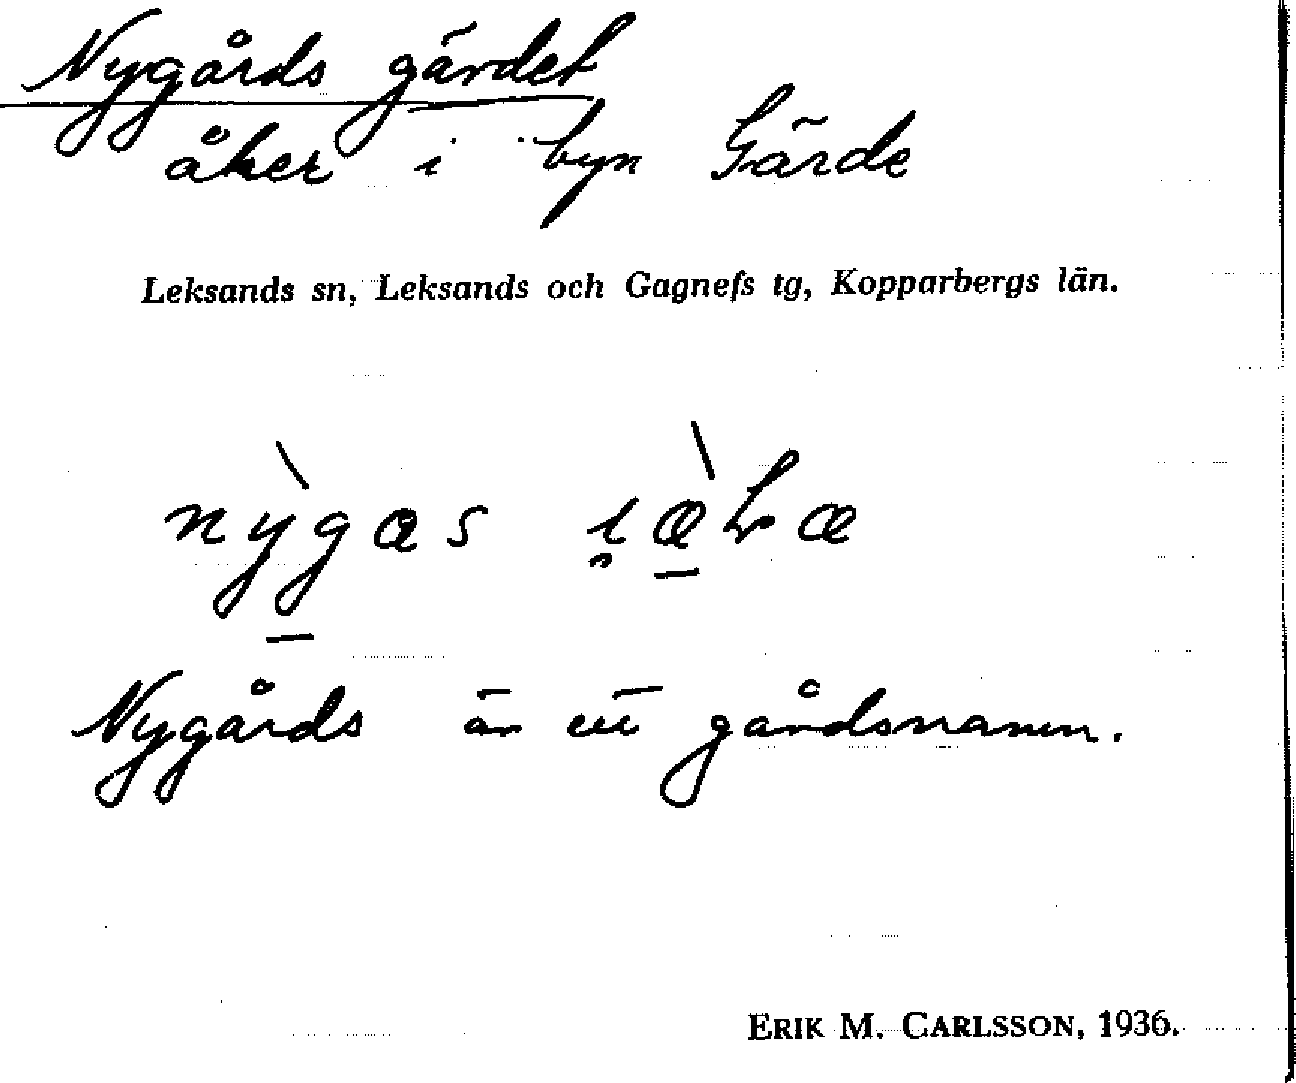 Nygårds gärdet
åker i byn Gärde
Leksands sn, Leksands och Gagnefs tg, Kopparbergs län.
Nygårds är ett gårdsnamn.
ERIK M. CARLSSON, 1936.